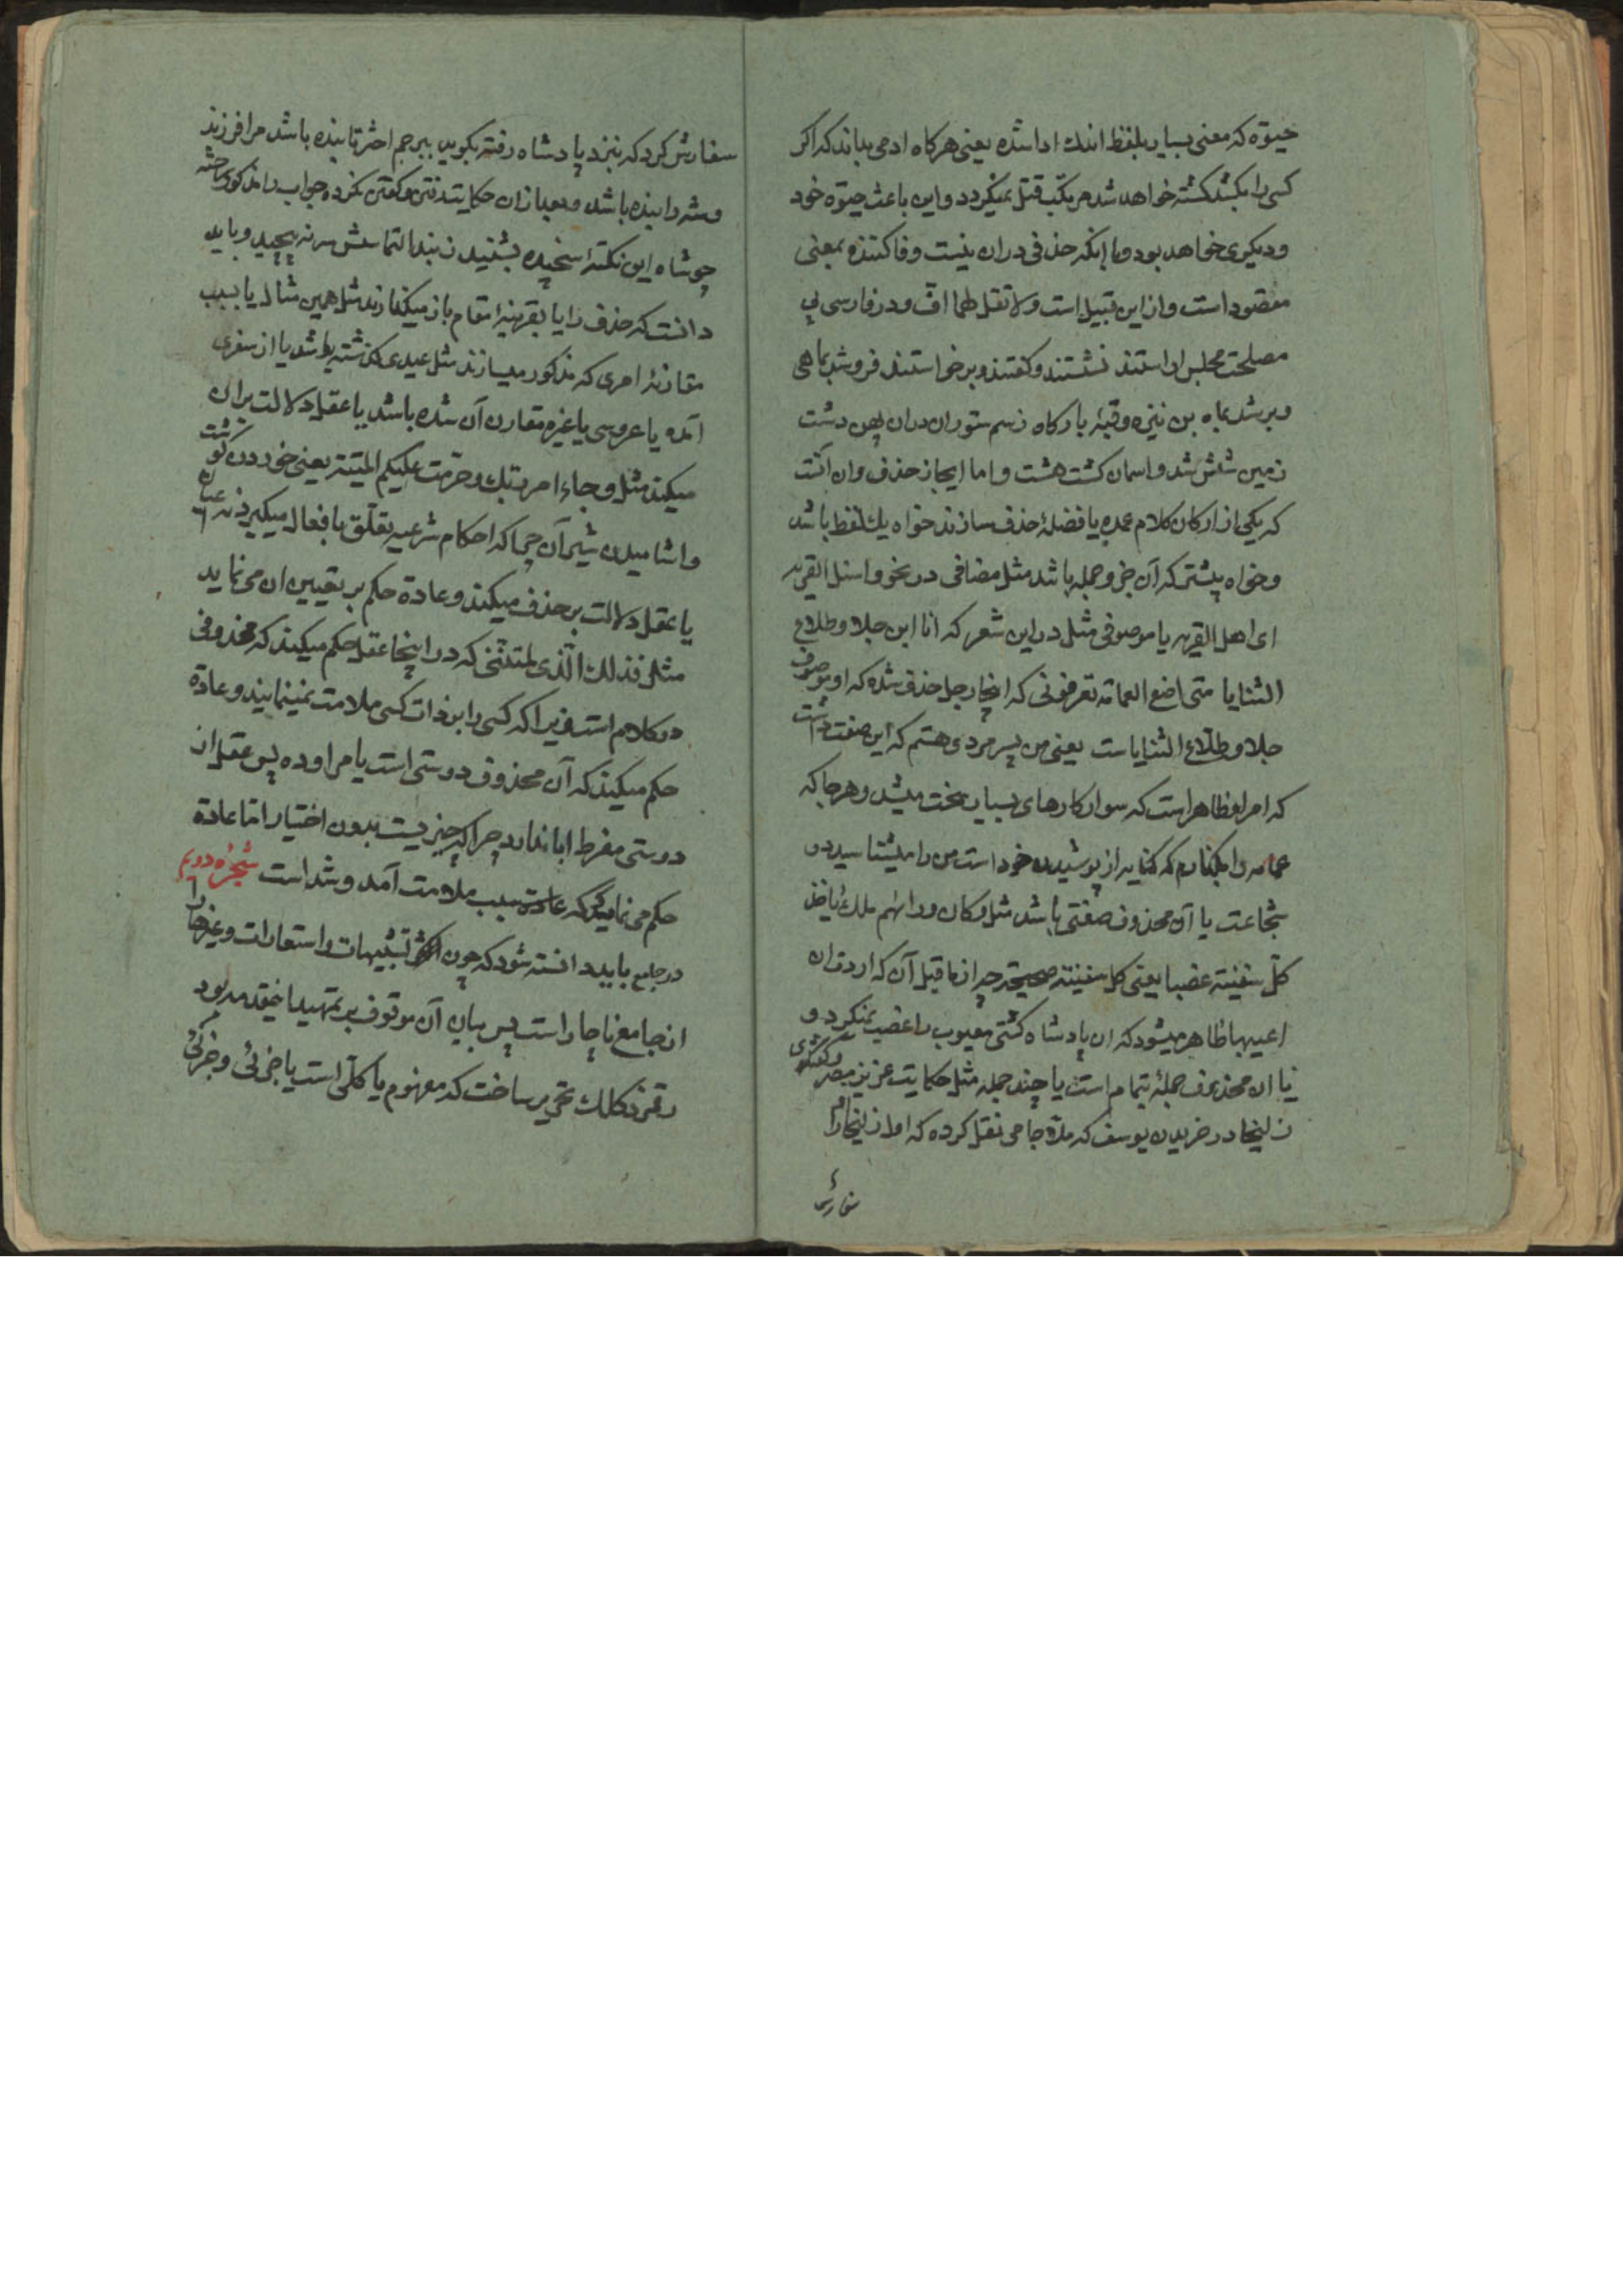 حیوة که معنی بسیار بلفظ اندك ادا شده یعنی هرکاه ادمی بداند که اکر
کسی را بکشد کشته خواهد شد مرتکب قتل نمیکردد و این باعث حیوة خود
و دیکری خواهد بود و با انکه حذفی دران نیست وفا کننده بمعنی
مقصود است و از این قبیل است ولا تقل لهما افّ و در فارسی پی
مصلحت مجلس اراستند نشستند و کفتند و برخواستند فرو شد بماهی
و بر شد بماه بن نیزه و قبّهٔ بارکاه ز سم ستوران دران پهن دشت
زمین شش شد و اسمان کشت هشت و اما ایجاز حذف و ان انست
که یکی از ارکان کلام عمده یا فضله حذف سازند خواه یك لفظ باشد
و خواه بیشتر که آن جزو جمله باشد مثل مضافی در نحو واسئل القریه
ای اهل القریه یا موصوفی مثل در این شعر که انا ابن جلا و طلاع
الثنایا متی اضع العمامه تعرفونی که اینجا رجل حذف شده که او موصوف
جلا و طلّاع الثنایاست یعنی من پسر مردی هستم که این صفت داشت
که امر او ظاهر است که سوار کارهای بسیار سخت میشد و هرجا که
عمامه را بکذارم که کنایه از پوشیدن خود است من را میشناسید در
شجاعت یا آن محذوف صفتی باشد مثل و کان ورائهم ملك یأخذ
کلّ سفینة غصبا یعنی کل سفینة صحیحة چه از ما قبل آن که اردت ان
اعیبها ظاهر میشود که ان پادشاه کشتی معیوب را غصب نمیکرد و
یا ان محذوف جملهٔ تمام است یا چند جمله مثل حکایت عزیز مصر و کفتکوی
زلیخا در خریدن یوسف که ملا جامی نقل کرده که اما زلیخا را
سفارش
سفارش کرد که بنزد پادشاه رفته بکوید ببرجم اختر تابنده باشد مرا فرزند
و شه را بنده باشد و بعد از ان حکایت رفتن و کفتن نکرده جواب را مذکور ساخته
چو شاه این نکتهٔ سنجیده بشنید ز بند التماسش سر نه پیچید و باید
دانست که حذف را یا بقرینهٔ مقام باز میکذارند مثل همین مثال یا بسبب
مقارنهٔ امری که مذکور میسازند مثل عیدی که کذشته باشد یا از سفری
آمده یا عروسی یا غیره مقارن آن شده باشد یا عقل دلالت بران
میکند مثل و جاء امر ربّك و حرّمت علیکم المیتة یعنی خوردن کوشت
و اشامیدن شیر آن چرا که احکام شرعیه تعلّق بافعال میکیرد نه اعیان
یا عقل دلالت بر حذف میکند و عادة حکم بر تعیین ان می نماید
مثل فذلك الّذی لمتنّنی که در اینجا عقل حکم میکند که محذوفی
در کلام است زیرا که کسی را بر ذات کسی ملامت نمینمایند و عادة
حکم میکند که آن محذوف دوستی است یا مراوده پس عقل از
دوستی مفرط ابا ندارد چرا که چیزیست بدون اختیار امّا عادة
حکم می نماید که عادة سبب ملامت آمد و شد است شجرهٔ دویم
در جامع باید دانسته شود که چون اکثر تشبیهات و استعارات و غیرها را
از جامع ناچار است پس بیان آن موقوف بر تمهید مقدمه بود
رقمزد کلك تحریر ساخت که مفهوم یا کلّی است یا جزئی و جزئی